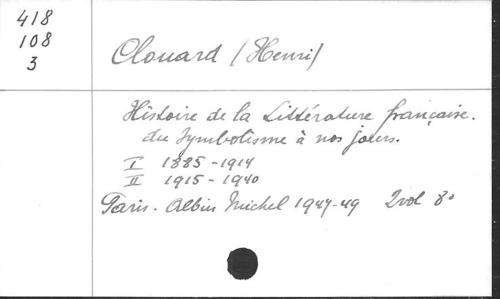 418
108
3
Clouard (Henri)
Histoire de la Littérature française.
du Symbolisme à nos jours.
I 1885-1914
II 1915-1940
Paris. Albin Michel 1947-49 2vol 8°